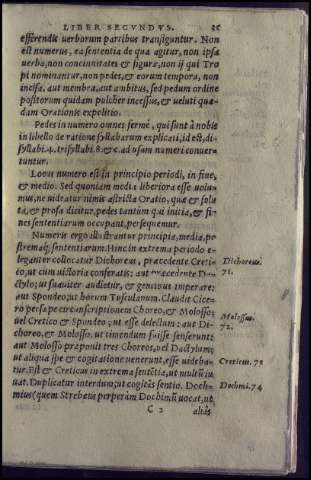 LIBER SECVNDVS.
efferendis uerborum partibus transiguntur. Non
est numerus, ea sententia de qua agitur, non ipsa
uerba, non concinnitates & figuræ, non ij qui Tro
pi nominantur, non pedes, & eorum tempora, non
incisa, aut membra, aut ambitus, sed pedum ordine
positorum quidam pulcher incessus, & ueluti quę-
dam Orationis expolitio.
Pedes in numero omnes fermè, qui sunt à nobis
in libello de ratione syllabarum explicati, id est, di-
syllabi.4. trisyllabi.8. &c. ad usum numeri conuer-
tuntur.
Locus numero est in principio periodi, in fine,
& medio. Sed quoniam media liberiora esse uolu-
mus, ne uideatur nimis astricta Oratio, quæ & solu
ta, & prosa dicitur. pedes tantùm qui initia, & fi-
nes sententiarum occupant, persequemur.
Numeris ergo illustrantur principia, media, po
stremaq́; sententiarum. Hinc in extrema periodo e-
leganter collocatur Dichoreus, præcedente Creti-
co, ut cum uictoria conferatis: aut præcedente Da-
ctylo; ut suauiter audietur, & genitiuus imperare:
aut Spondeo; ut hortum Tusculanum. Claudit Cice-
ro persæpe circunscriptionem Choreo, & Molosso;
uel Cretico & Spondeo; ut esse delectum: aut Di-
choreo, & Molosso. ut timendum fuisse senserunt:
aut Molosso præponit tres Choreos, uel Dactylum;
ut aliqua spe & cogitatione uenerunt, esse uideba-
tur. Est & Creticus in extrema sentẽtia, ut multũ iu
uat. Duplicatur interdum; ut cogitãs sentio. Doch-
mius (quem Strebæus perperàm Dochimũ uocat, ut
C 2 aliâs
Dichoreus.
71.
Molossus.
72.
Creticus. 73
Dochmi. 74